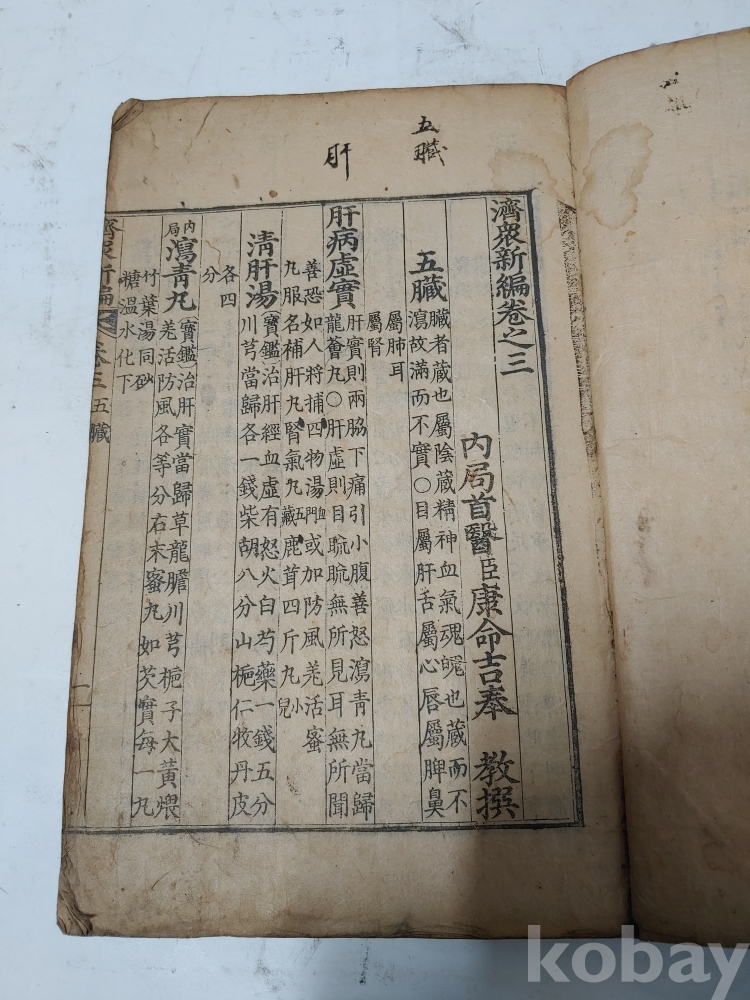 五臟
肝
濟衆新編卷之三
內局首醫臣康命吉奉 教撰
五臟 臟者藏也屬陰藏精神血氣魂魄也藏而不
瀉故滿而不實〇目屬肝舌屬心唇屬脾鼻
屬肺耳
屬腎
肝病虛實 肝實則兩脇下痛引小腹善怒瀉靑丸當歸
龍薈丸〇肝虛則目䀮䀮無所見耳無所聞
善恐如人將捕四物湯血門或加防風羌活蜜
丸服名補肝丸腎氣丸五臟鹿茸四斤丸小兒
淸肝湯(寶鑑)治肝經血虛有怒火白芍藥一錢五分
川芎當歸各一錢柴胡八分山梔仁牧丹皮
各四
分
內局瀉靑丸(寶鑑)治肝實當歸草龍膽川芎梔子大黃煨
羌活防風各等分右末蜜丸如芡實每一丸
竹葉湯同砂
糖溫水化下
濟衆新編 卷三 五臟 一
kobay